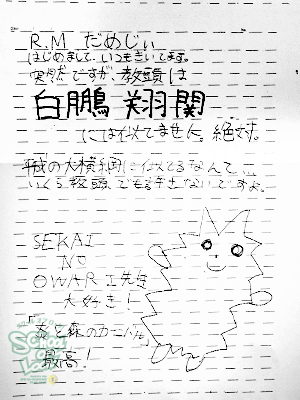 R.M だめじぃ
はじめまして、いつもきいてます。
突然ですが、教頭は
白鵬 翔関
には似てません。絶対。
平成の大横綱に似てるなんて…
いくら教頭でもゆるせないですよ。
SEKAI
NO
OWARI先生
大好き!
「炎と森のカーニバル」
最高!
School of Lock!